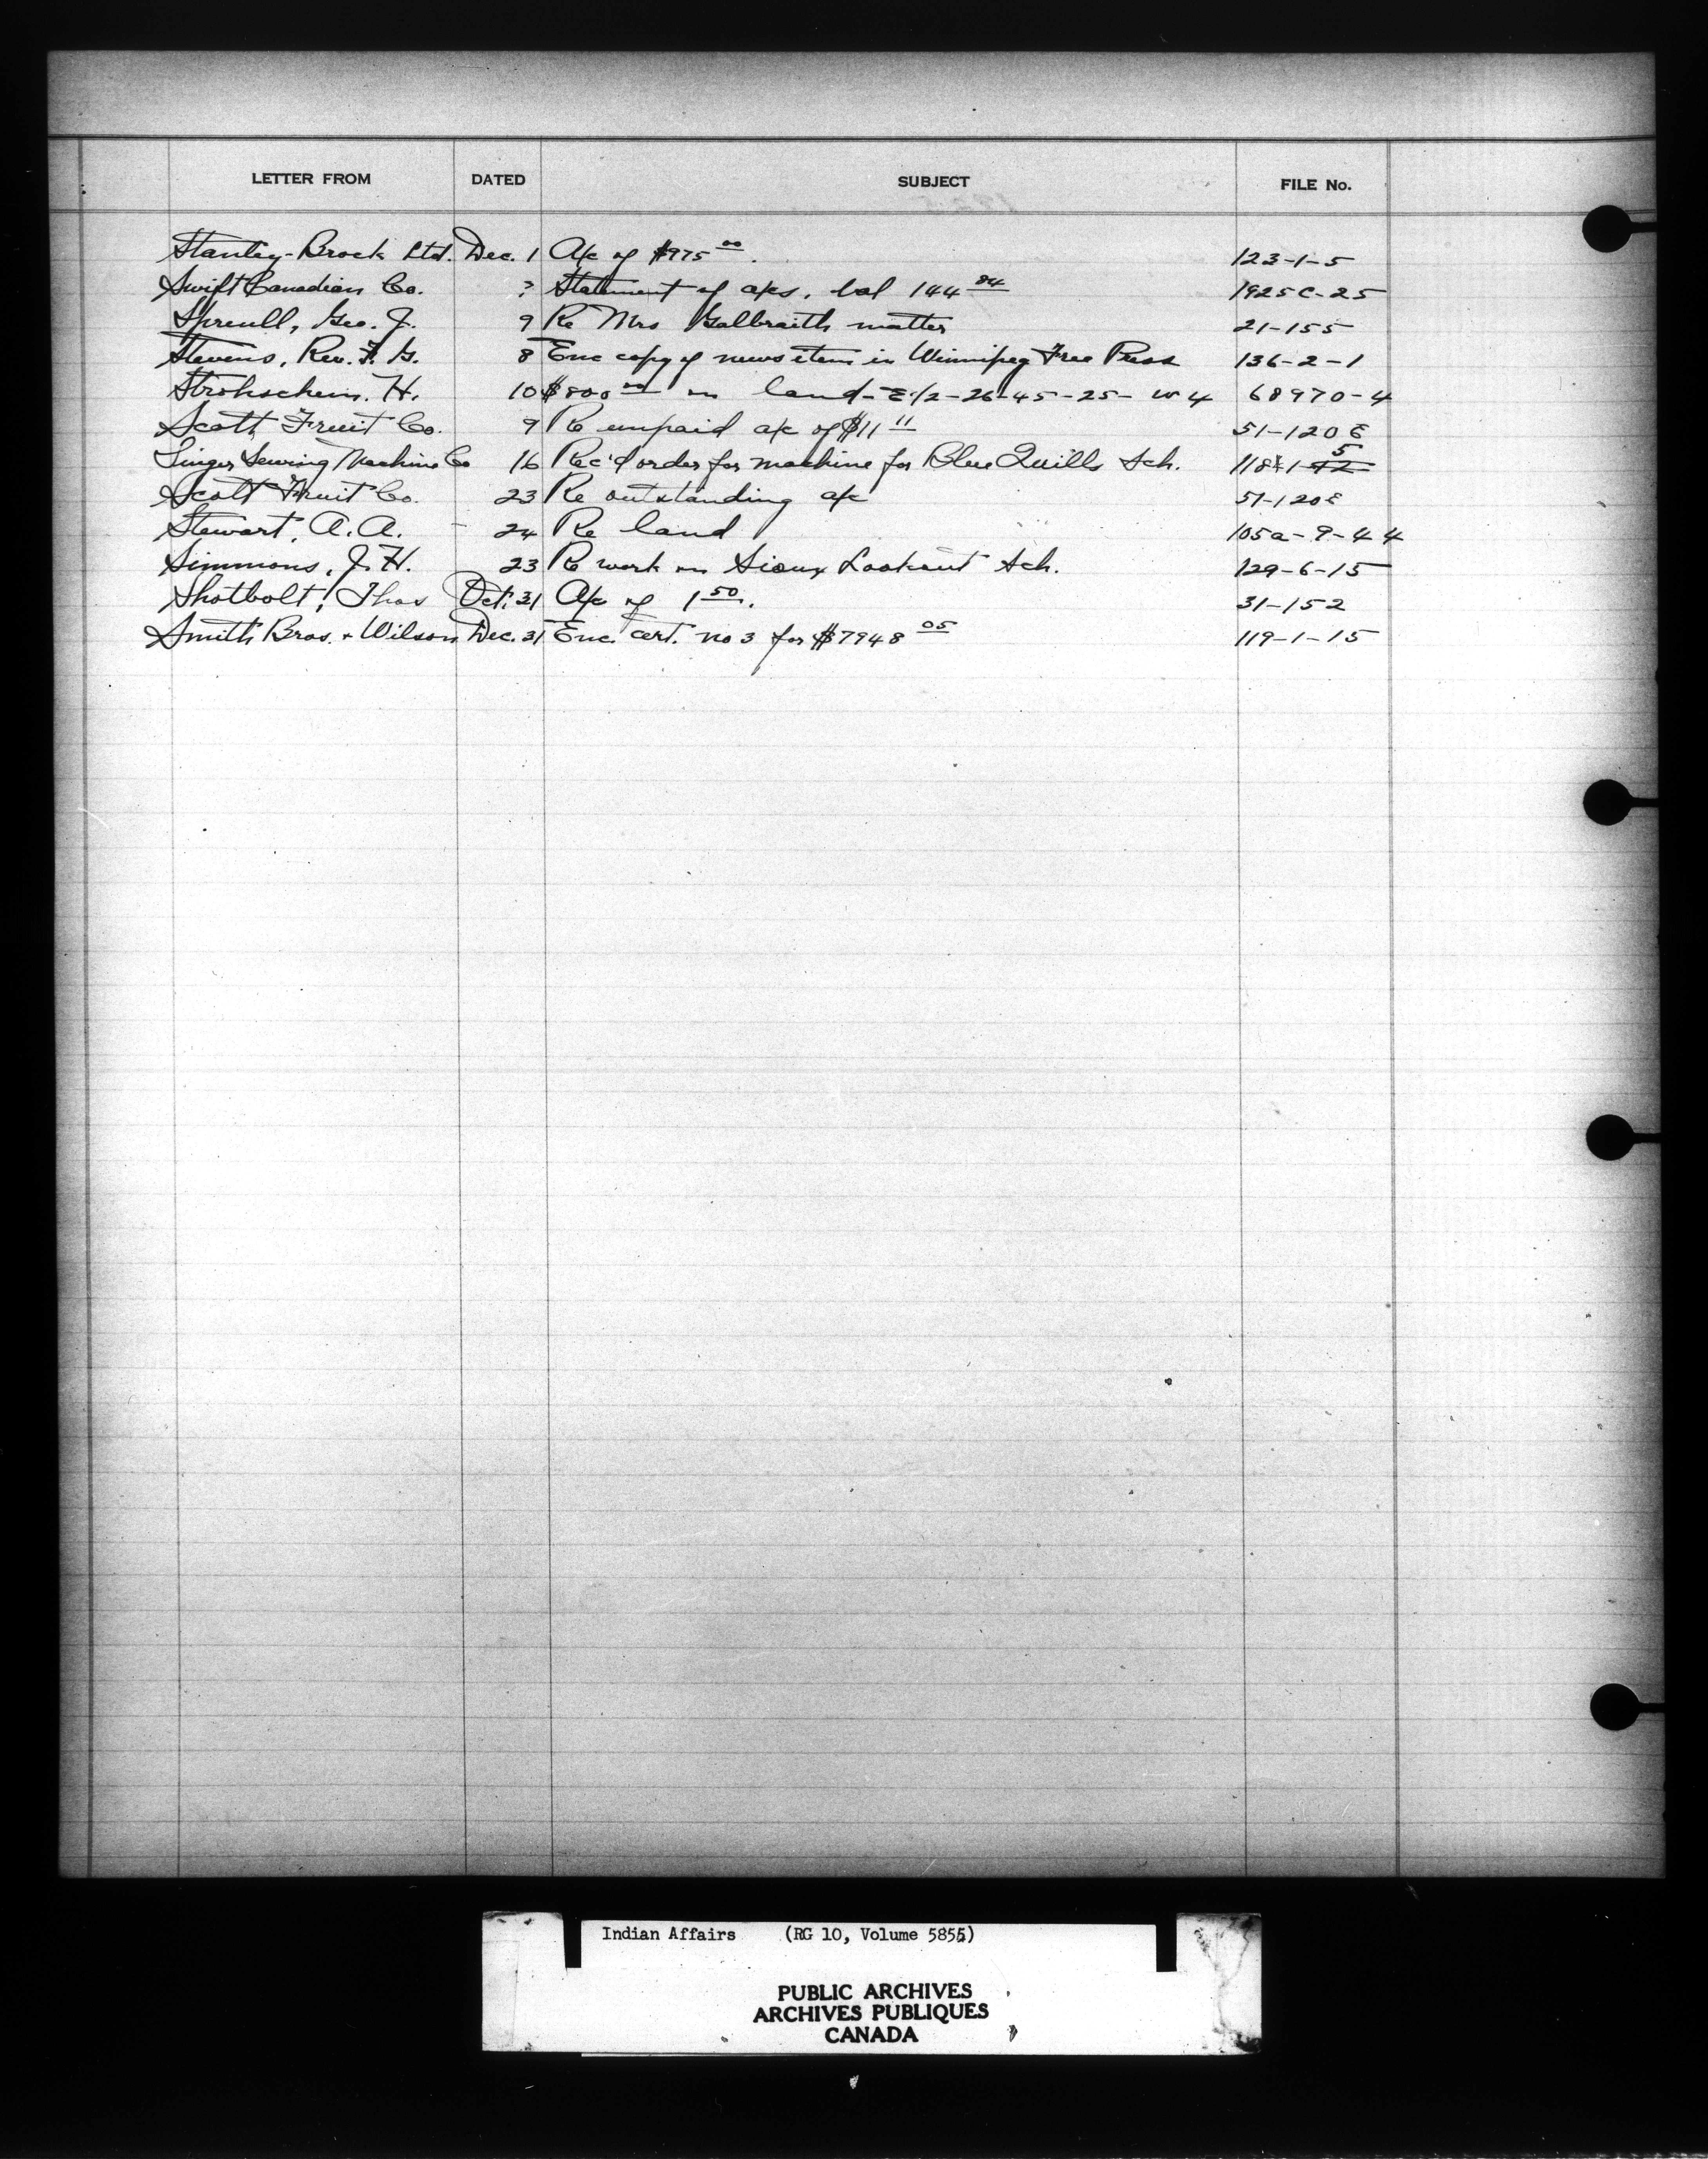 LETTER FROM DATED SUBJECT FILE No.
Stanley-Brock Ltd. Dec. 1 A/c of $975 00. 123-1-5
Swift Canadian Co. ? Statement of a/cs. bal 144 84 1925C-25
Spreull, Geo. J. 9 Re Mrs Galbraith matter 21-155
Stevens, Rev. F. G. 8 Enc copy of news item in Winnipeg Free Press 136-2-1
Strohschein. H. 10 $800 00 on land - E 1/2-26-45-25- W 4 68970-4
Scott Fruit Co. 9 Re unpaid a/c of $11 11 51-120 E
Singer Sewing Machine Co 16 Rec'd order for machine for Blue Quills Sch. 118-1-5
Scott Fruit Co. 23 Re outstanding a/c 51-120E
Stewart, A. A. - 24 Re land 105a-9-44
Simmons, J. H. 23 Re work on Sioux Lookout Sch. 129-6-15
Shotbolt, Thos Oct. 31 A/c of 1 50. 31-152
Smith Bros. + Wilson Dec. 31 Enc. cert. no 3 for $7948 05 119-1-15
Indian Affairs (RG 10, Volume 5855)
PUBLIC ARCHIVES
ARCHIVES PUBLIQUES
CANADA